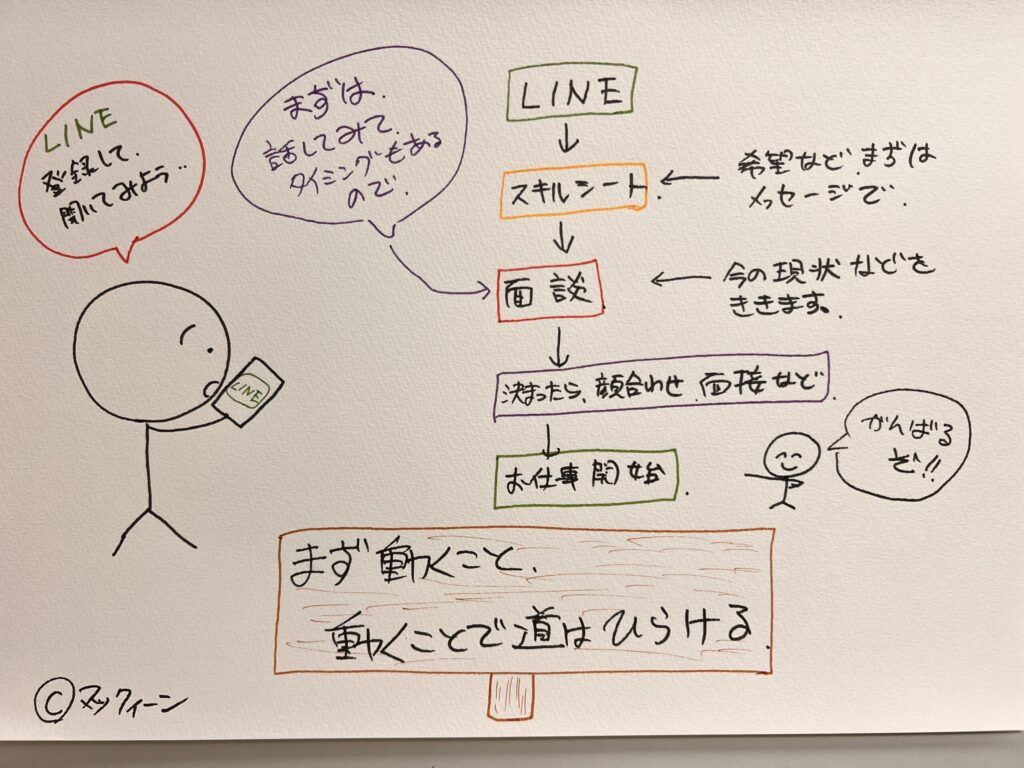 LINE
登録して、
聞いてみよう‥
まずは、
話してみて、
タイミングもある
ので、
LINE
スキルシート
希望など、まずは
メッセージで、
面談
今の現状などを
ききます。
決まったら、顔合わせ、面接など
お仕事開始
がんばる
ぞ!!
LINE
まず動くこと、
動くことで道はひらける
©マックィーン